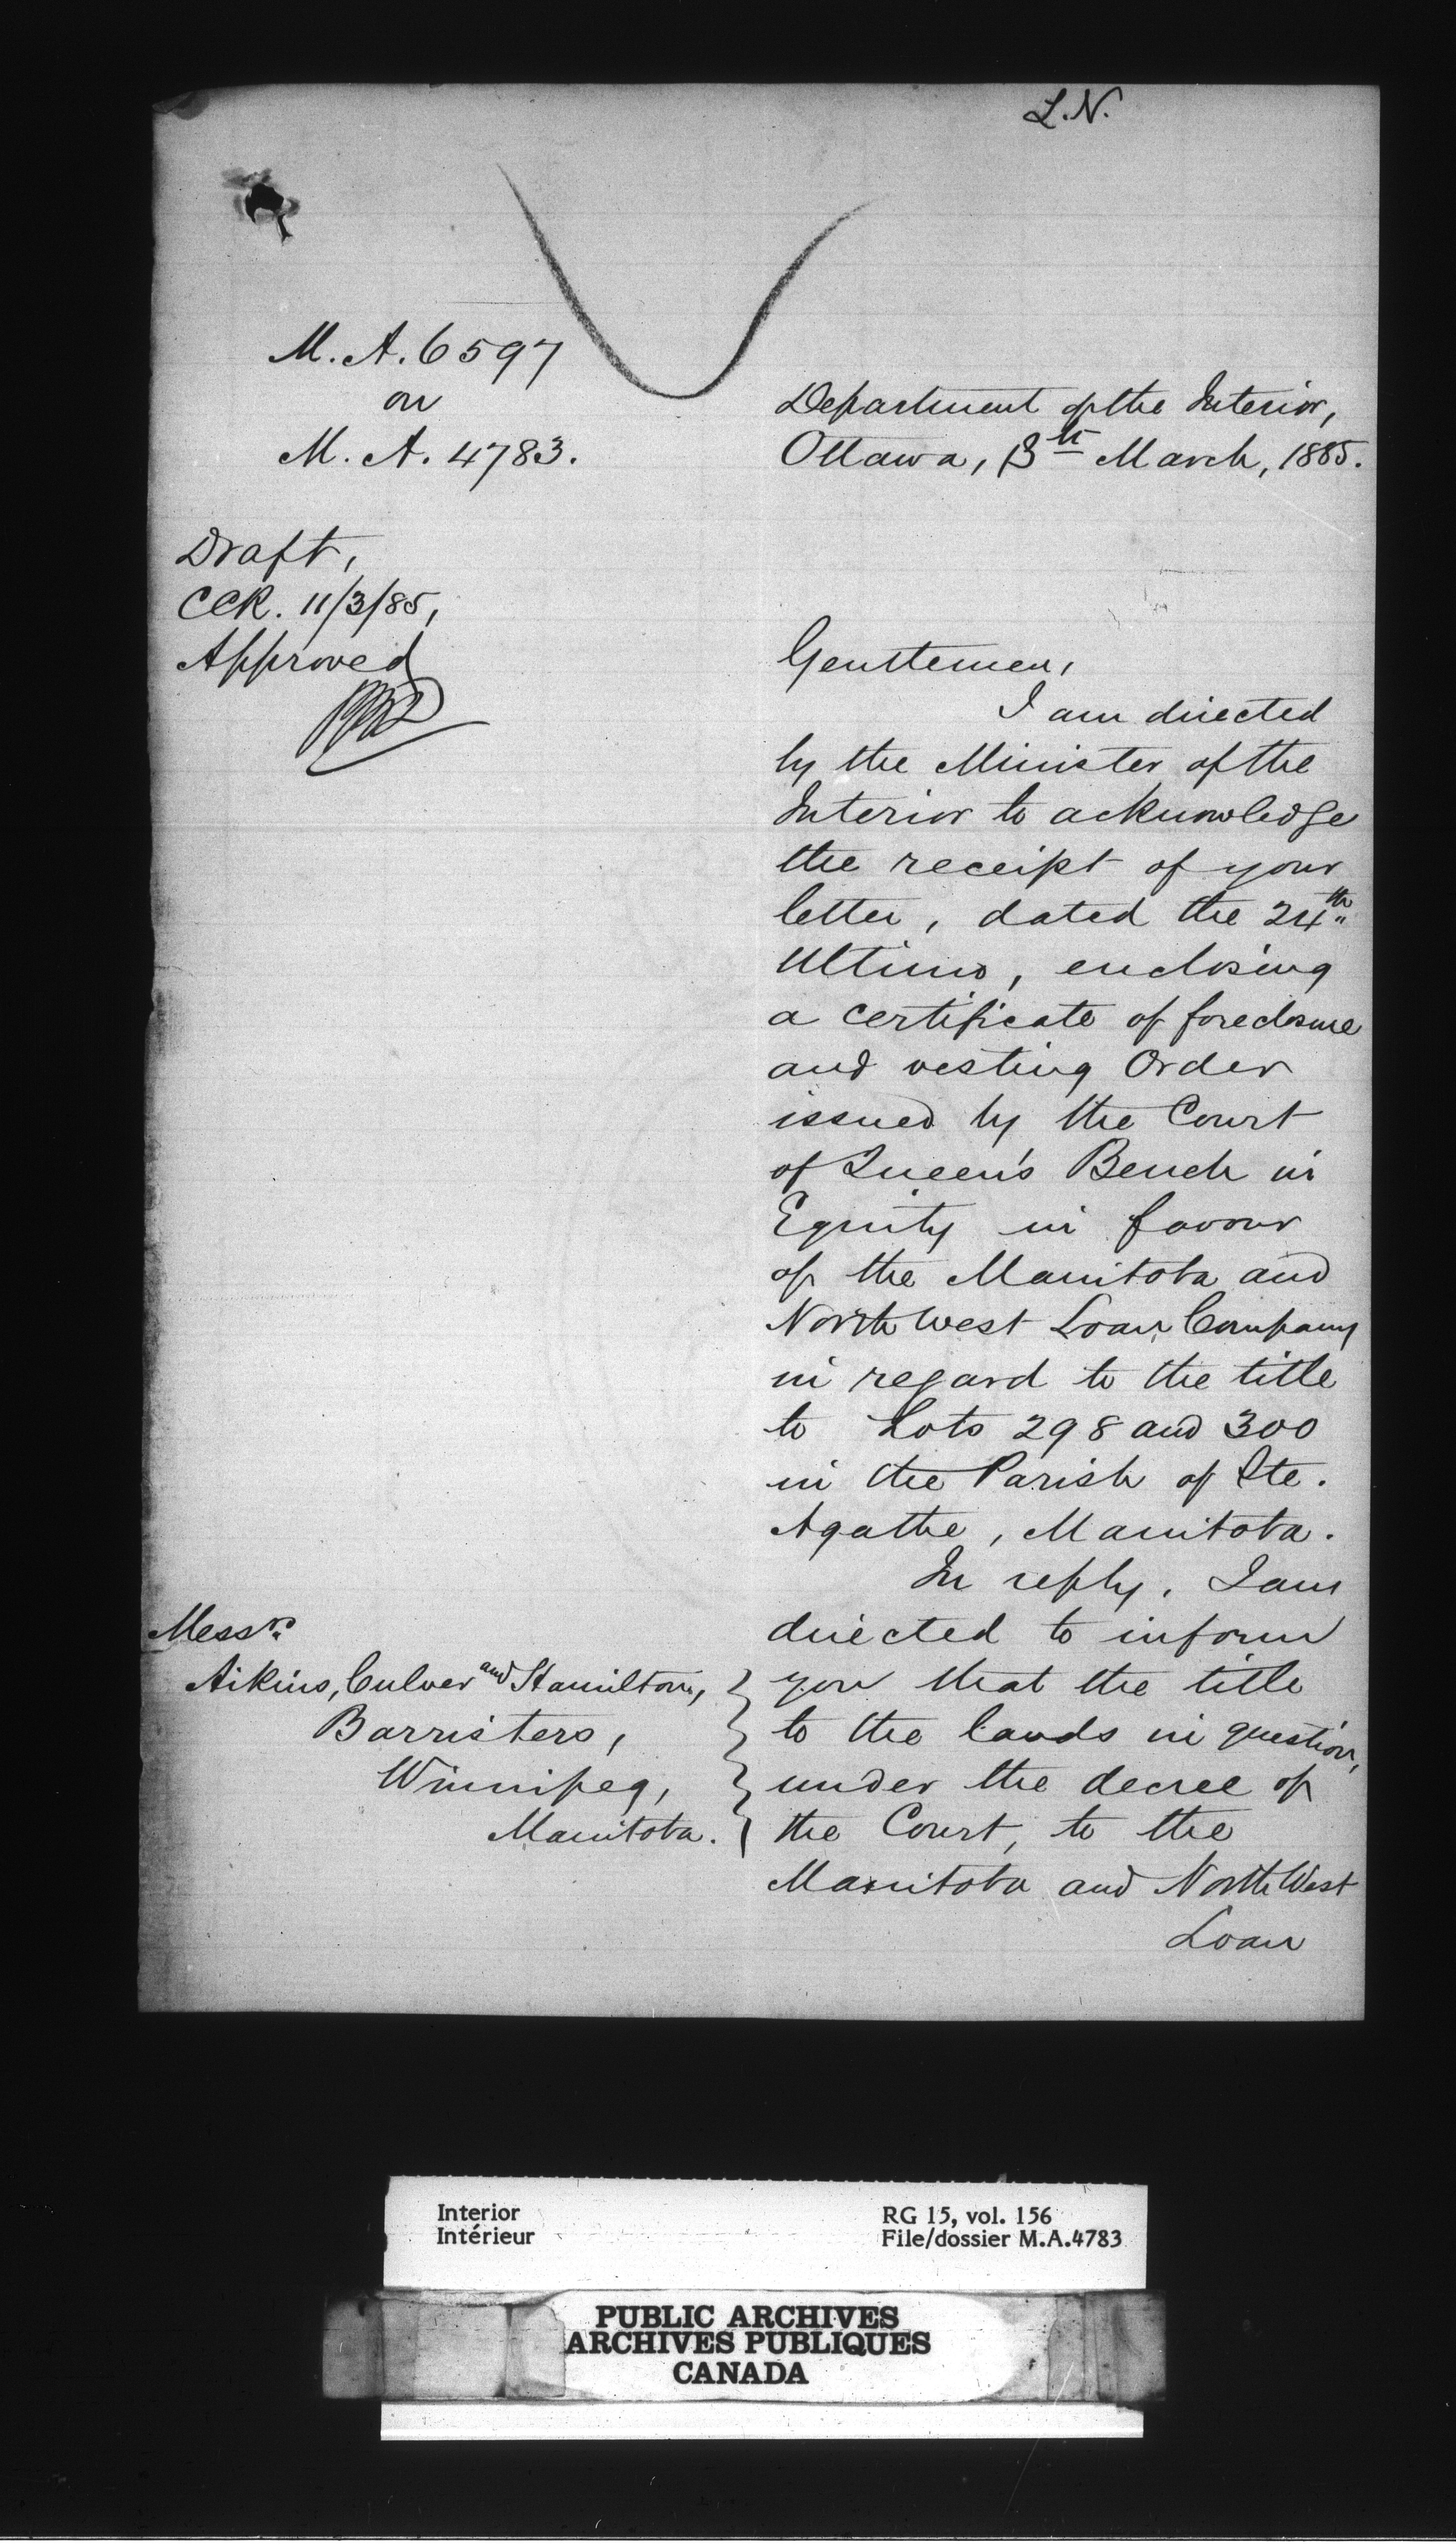 L.N.
M.A. 6597
on
M.A. 4783.
Department of the Interior,
Ottawa, 13th March, 1885.
Draft,
CCR. 11/3/85,
Approved
Gentlemen,
I am directed
by the Minister of the
Interior to acknowledge
the receipt of your
letter, dated the 24th
Ultimo, enclosing
a certificate of foreclosure
and vesting Order
issued by the Court
of Queen's Bench in
Equity in favour
of the Manitoba and
North West Loan Company
in regard to the title
to Lots 298 and 300
in the Parish of Ste.
Agathe, Manitoba.
In reply, I am
directed to inform
you that the title
to the lands in question,
under the decree of
the Court, to the
Manitoba and North West
Loan
Messrs
Aikins, Culver and Hamilton,
Barristers,
Winnipeg,
Manitoba.
Interior
Intérieur
RG 15, vol. 156
File/dossier M.A.4783
PUBLIC ARCHIVES
ARCHIVES PUBLIQUES
CANADA